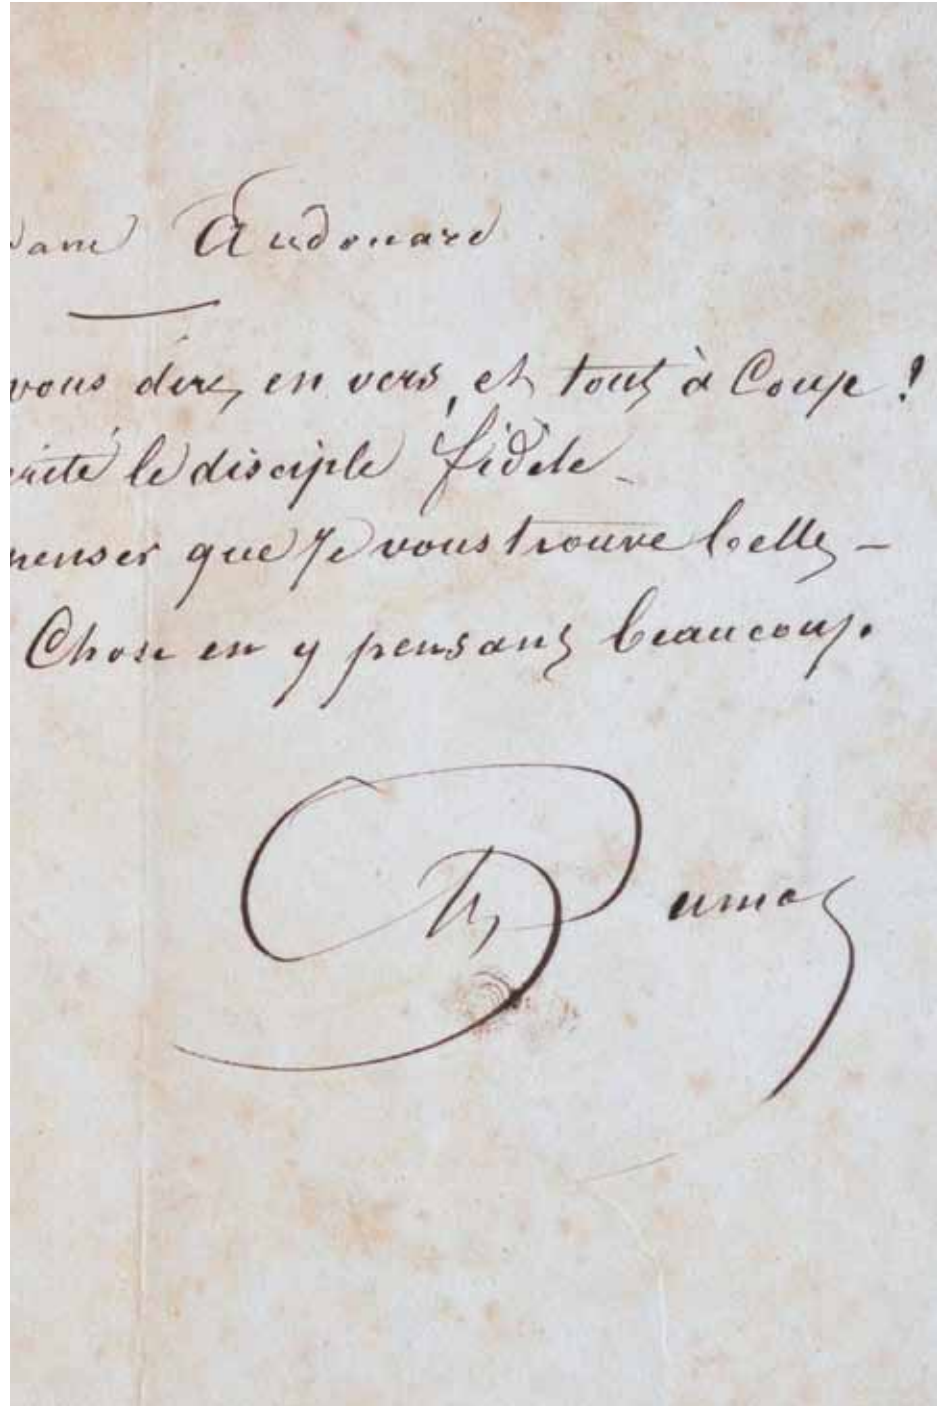 dame Audouard
vous dire, en vers, et tout à Coup !
le disciple fidèle_
penser que Je vous trouve belle –
Chose en y pensant beaucoup.
Dumas